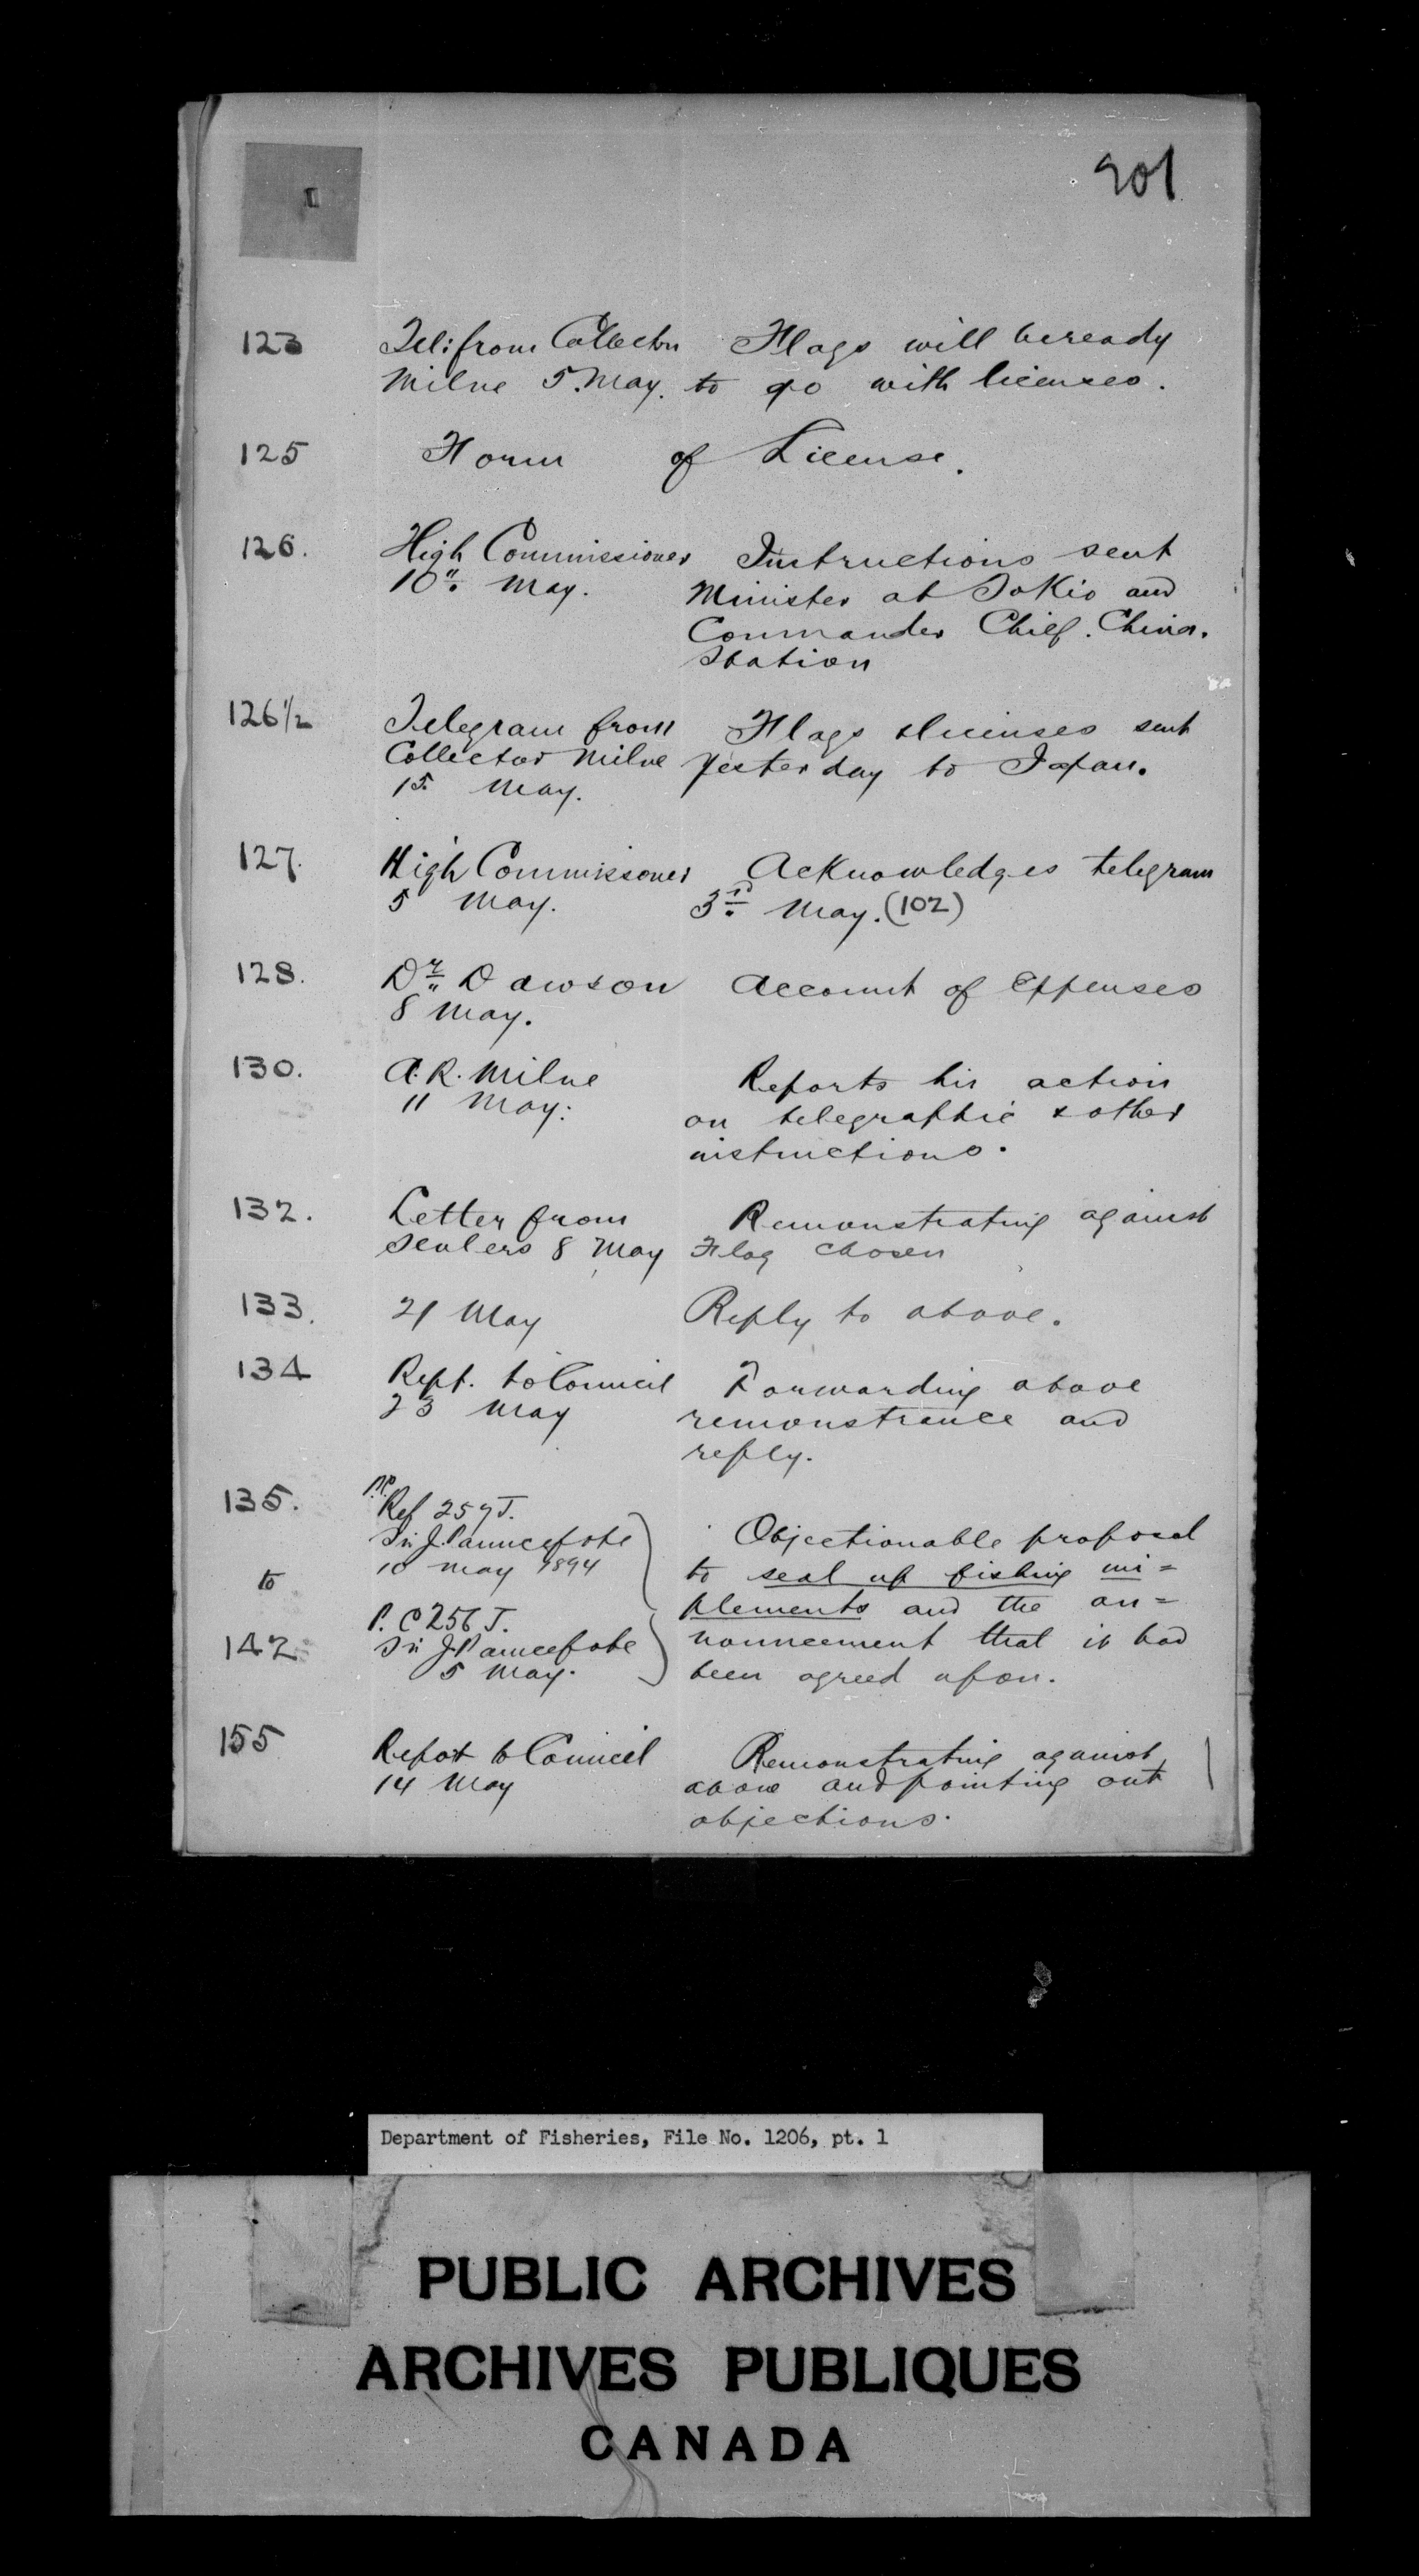 901
123 Tel: from Collector Flags will be ready
Milne 5. May. to go with licenses.
125 Form of License.
126. High Commissioner Instructions sent
10" May. Minister at Tokio and
Commander Chief. China.
Station
126 1/2 Telegram from Flags & licenses sent
Collector Milne yesterday to Japan.
15. May.
127. High Commissoner Acknowledges telegram
5 May. 3rd May. (102)
128. Dr. Dawson Account of Expenses
8 May.
130. A. R. Milne Reports his action
11 May: on telegraphic & other
instructions.
132. Letter from Remonstrating against
Sealers 8 May Flag chosen
133. 21 May Reply to above.
134 Rept. to Council Forwarding above
23 May remonstrance and
reply.
135. P.C. Ref 257 J.
Sir J. Pauncefote Objectionable proposal
10 May 1894 to seal up fishing im=
to
P.C 256 J. plements and the an=
142 Sir J. Pauncefote nouncement that it had
5 May. been agreed upon.
155 Report to Council Remonstrating against
14 May above and pointing out
objections.
Department of Fisheries, File No. 1206, pt. 1
PUBLIC ARCHIVES
ARCHIVES PUBLIQUES
CANADA